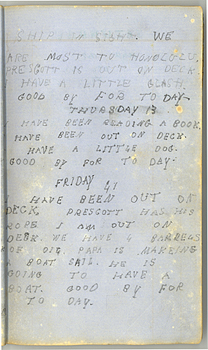 SHIP IN SIGHT. WE
ARE MOST TO HONOLULU,
PRESCOTT IS OUT ON DECK
I HAVE A LITTLE GLASH.
GOOD BY FOR TO DAY.
THURSDAY 13
HAVE BEEN READING A BOOK.
HAVE BEEN OUT ON DECK.
HAVE A LITTLE DOG.
GOOD BY FOR TO DAY.
FRIDAY
HAVE BEEN OUT ON
DECK, PRESCOTT HAS HIS
ROPE I AM OUT ON
DECK. WE HAVE 4 BARRELS
OF OIL. PAPA IS MAKEING
A BOAT SAIL. HE IS
GOING TO HAVE A
BOAT. GOOD BY FOR
TO DAY.